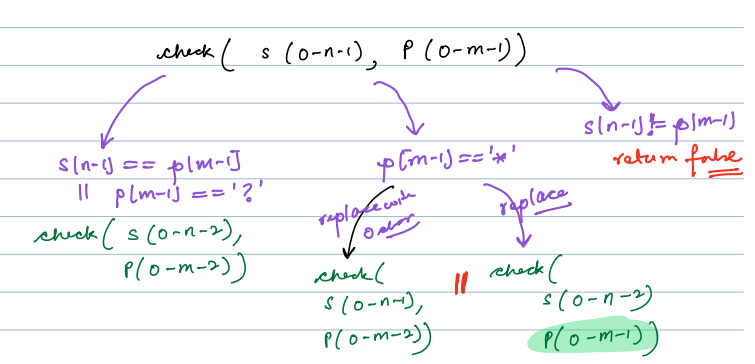 check( s (0-n-1), P (0-m-1))
s[n-1] == p[m-1]
|| p[m-1] == '?'
check( s (0-n-2),
P(0-m-2))
p[m-1] == '*'
replace with
0 char
check(
s (0-n-1),
P(0-m-2))
||
replace
check(
s (0-n-2)
P(0-m-1))
s[n-1] != p[m-1]
return false